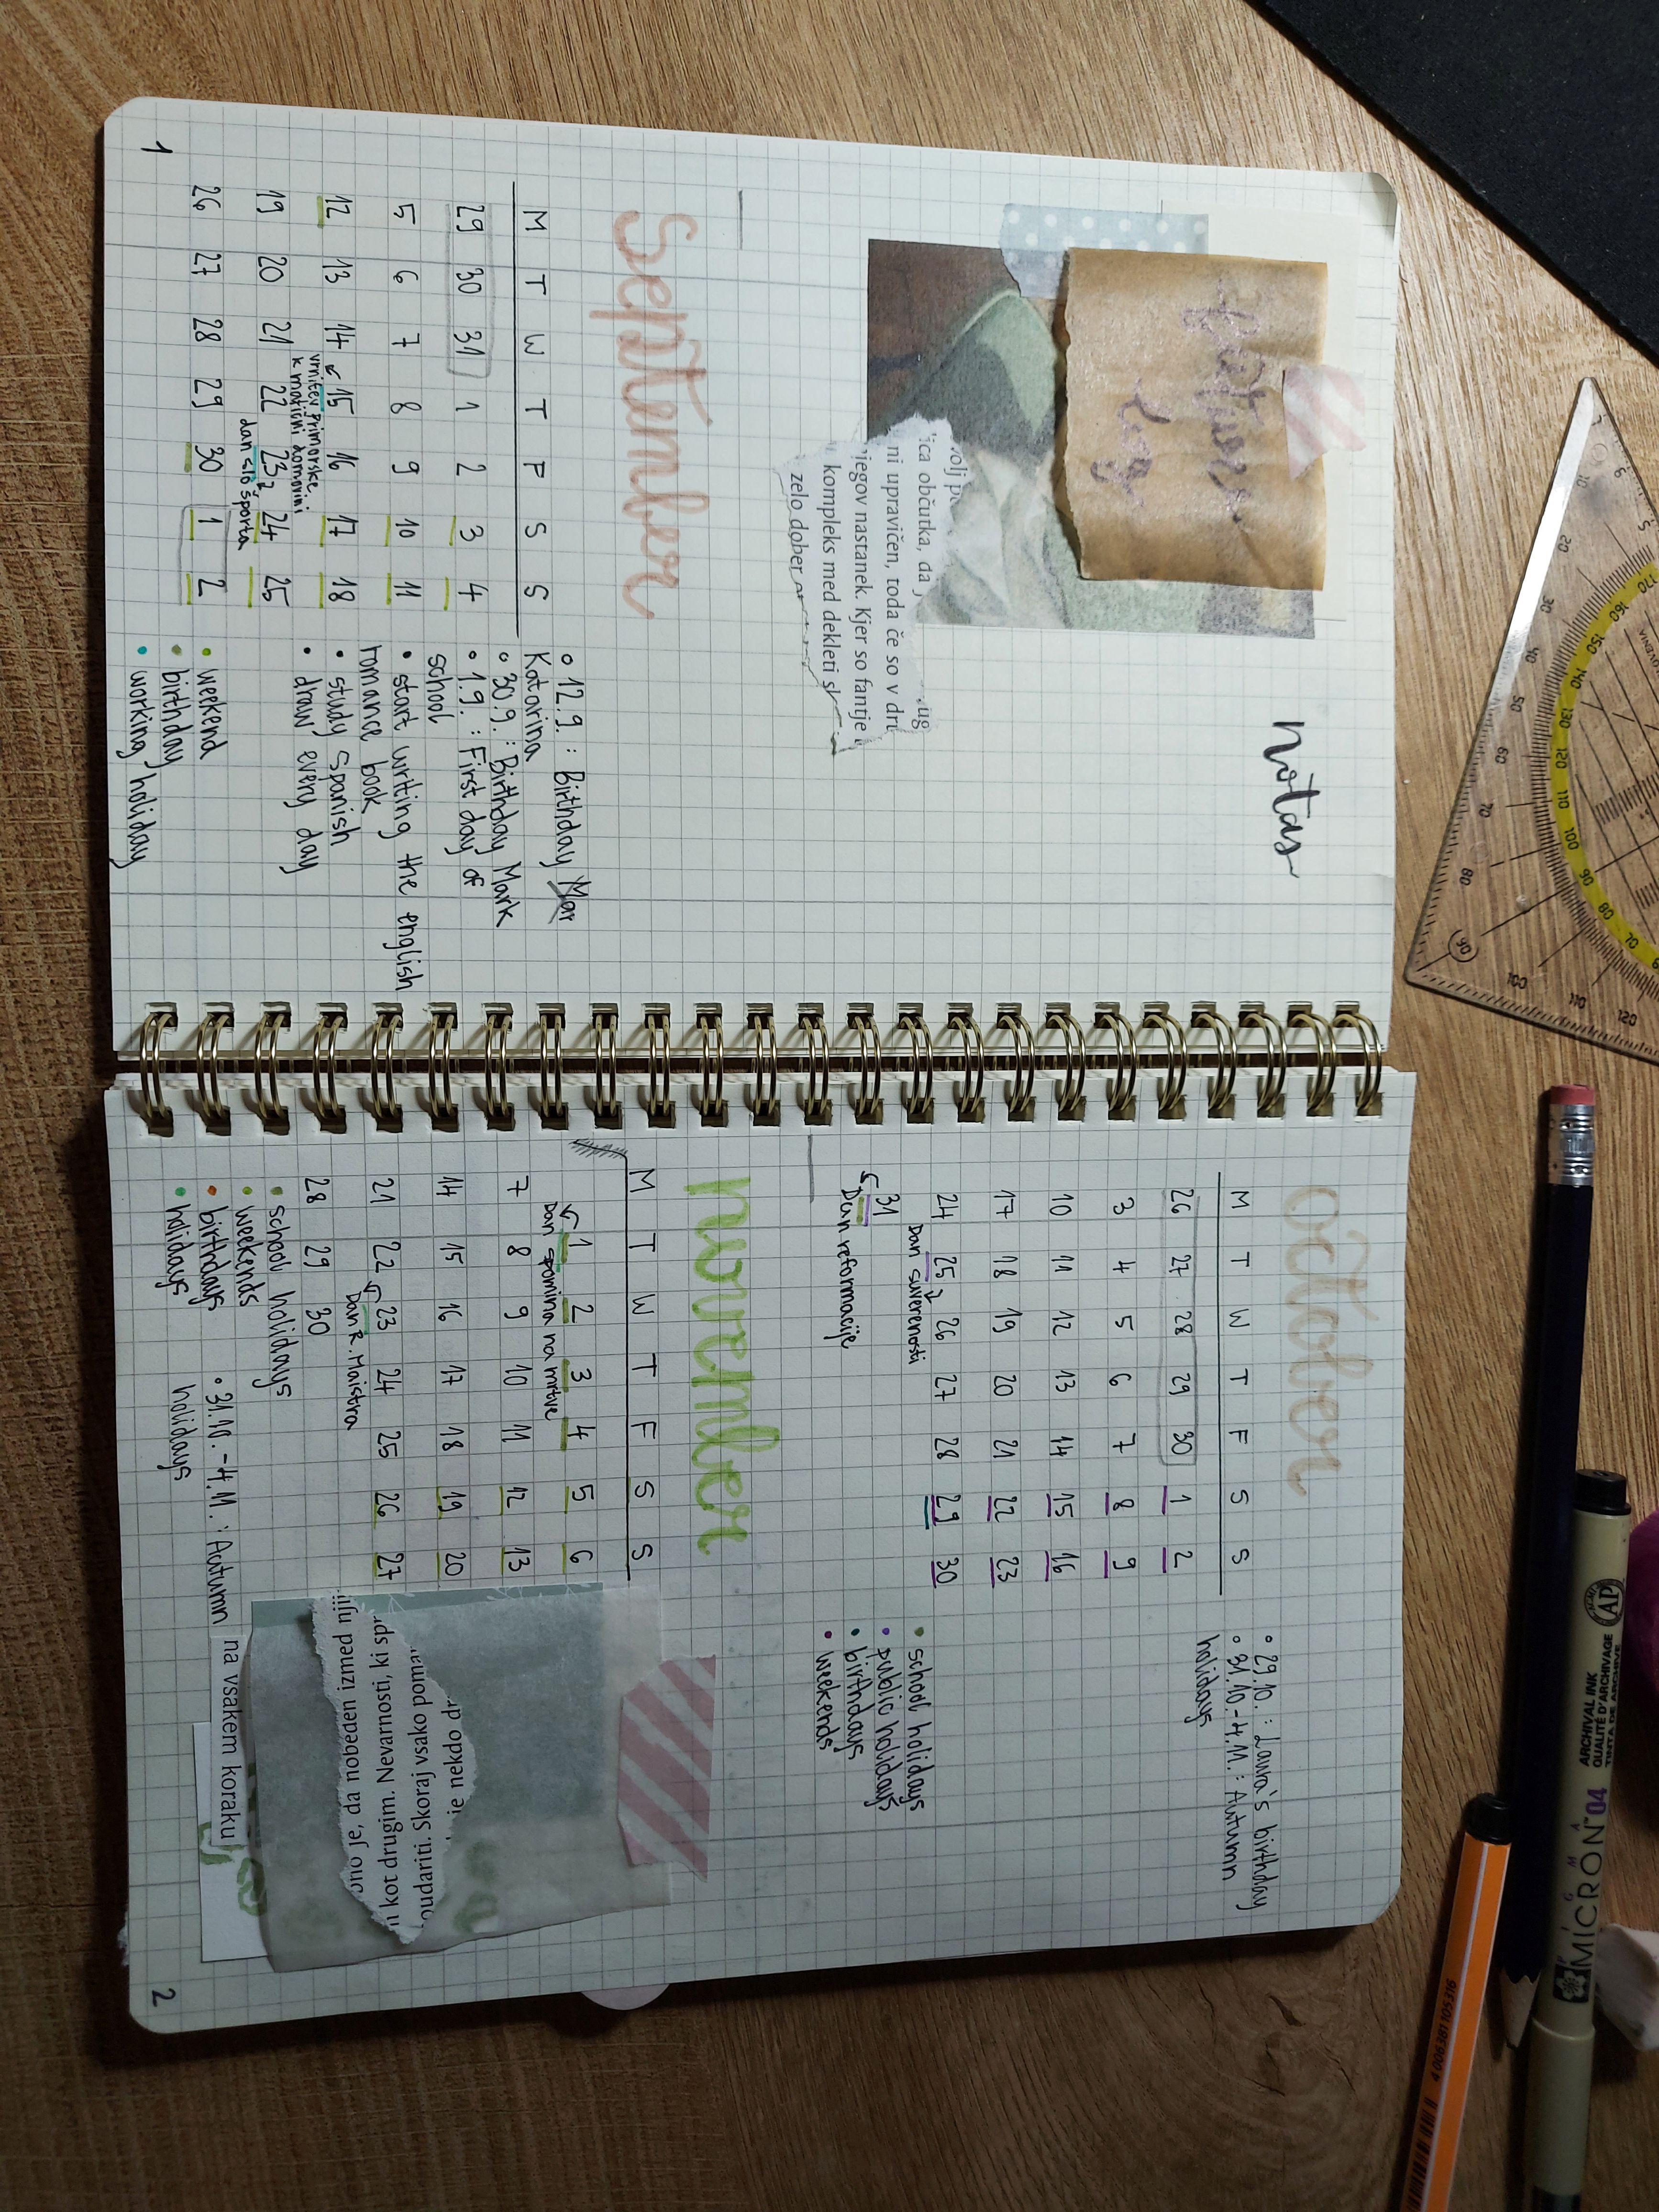 future
log
notas
ica občutka, da
ni upravičen, toda če so v dru
jegov nastanek. Kjer so fantje
kompleks med dekleti
zelo dober
september
M T W T F S S
29 30 31 1 2 3 4
5 6 7 8 9 10 11
12 13 14 15 16 17 18
vrnitev Primorske
k matični domovini
19 20 21 22 23 24 25
dan slo športa
26 27 28 29 30 1 2
12.9.: Birthday Mar
Katarina
30.9.: Birthday Mark
1.9.: First day of
school
start writing the english
romance book
study spanish
draw every day
weekend
birthday
working holiday
1
october
M T W T F S S
26 27 28 29 30 1 2
3 4 5 6 7 8 9
10 11 12 13 14 15 16
17 18 19 20 21 22 23
24 25 26 27 28 29 30
Dan suverenosti
31
Dan reformacije
29.10.: Laura's birthday
31.10.-4.11.: Autumn
holidays
school holidays
public holidays
birthdays
weekends
november
M T W T F S S
1 2 3 4 5 6
Dan spomina na mrtve
7 8 9 10 11 12 13
14 15 16 17 18 19 20
21 22 23 24 25 26 27
Dan R. Maistra
28 29 30
school holidays
weekends
birthdays
holidays
31.10.-4.11.: Autumn
holidays
ono je, da nobeden izmed nji
kot drugim. Nevarnosti, ki spr
oudariti. Skoraj vsako poma
je nekdo
na vsakem koraku
2
ARCHIVAL INK
QUALITÉ D'ARCHIVAGE
AP
MICRON 04
4006381105316